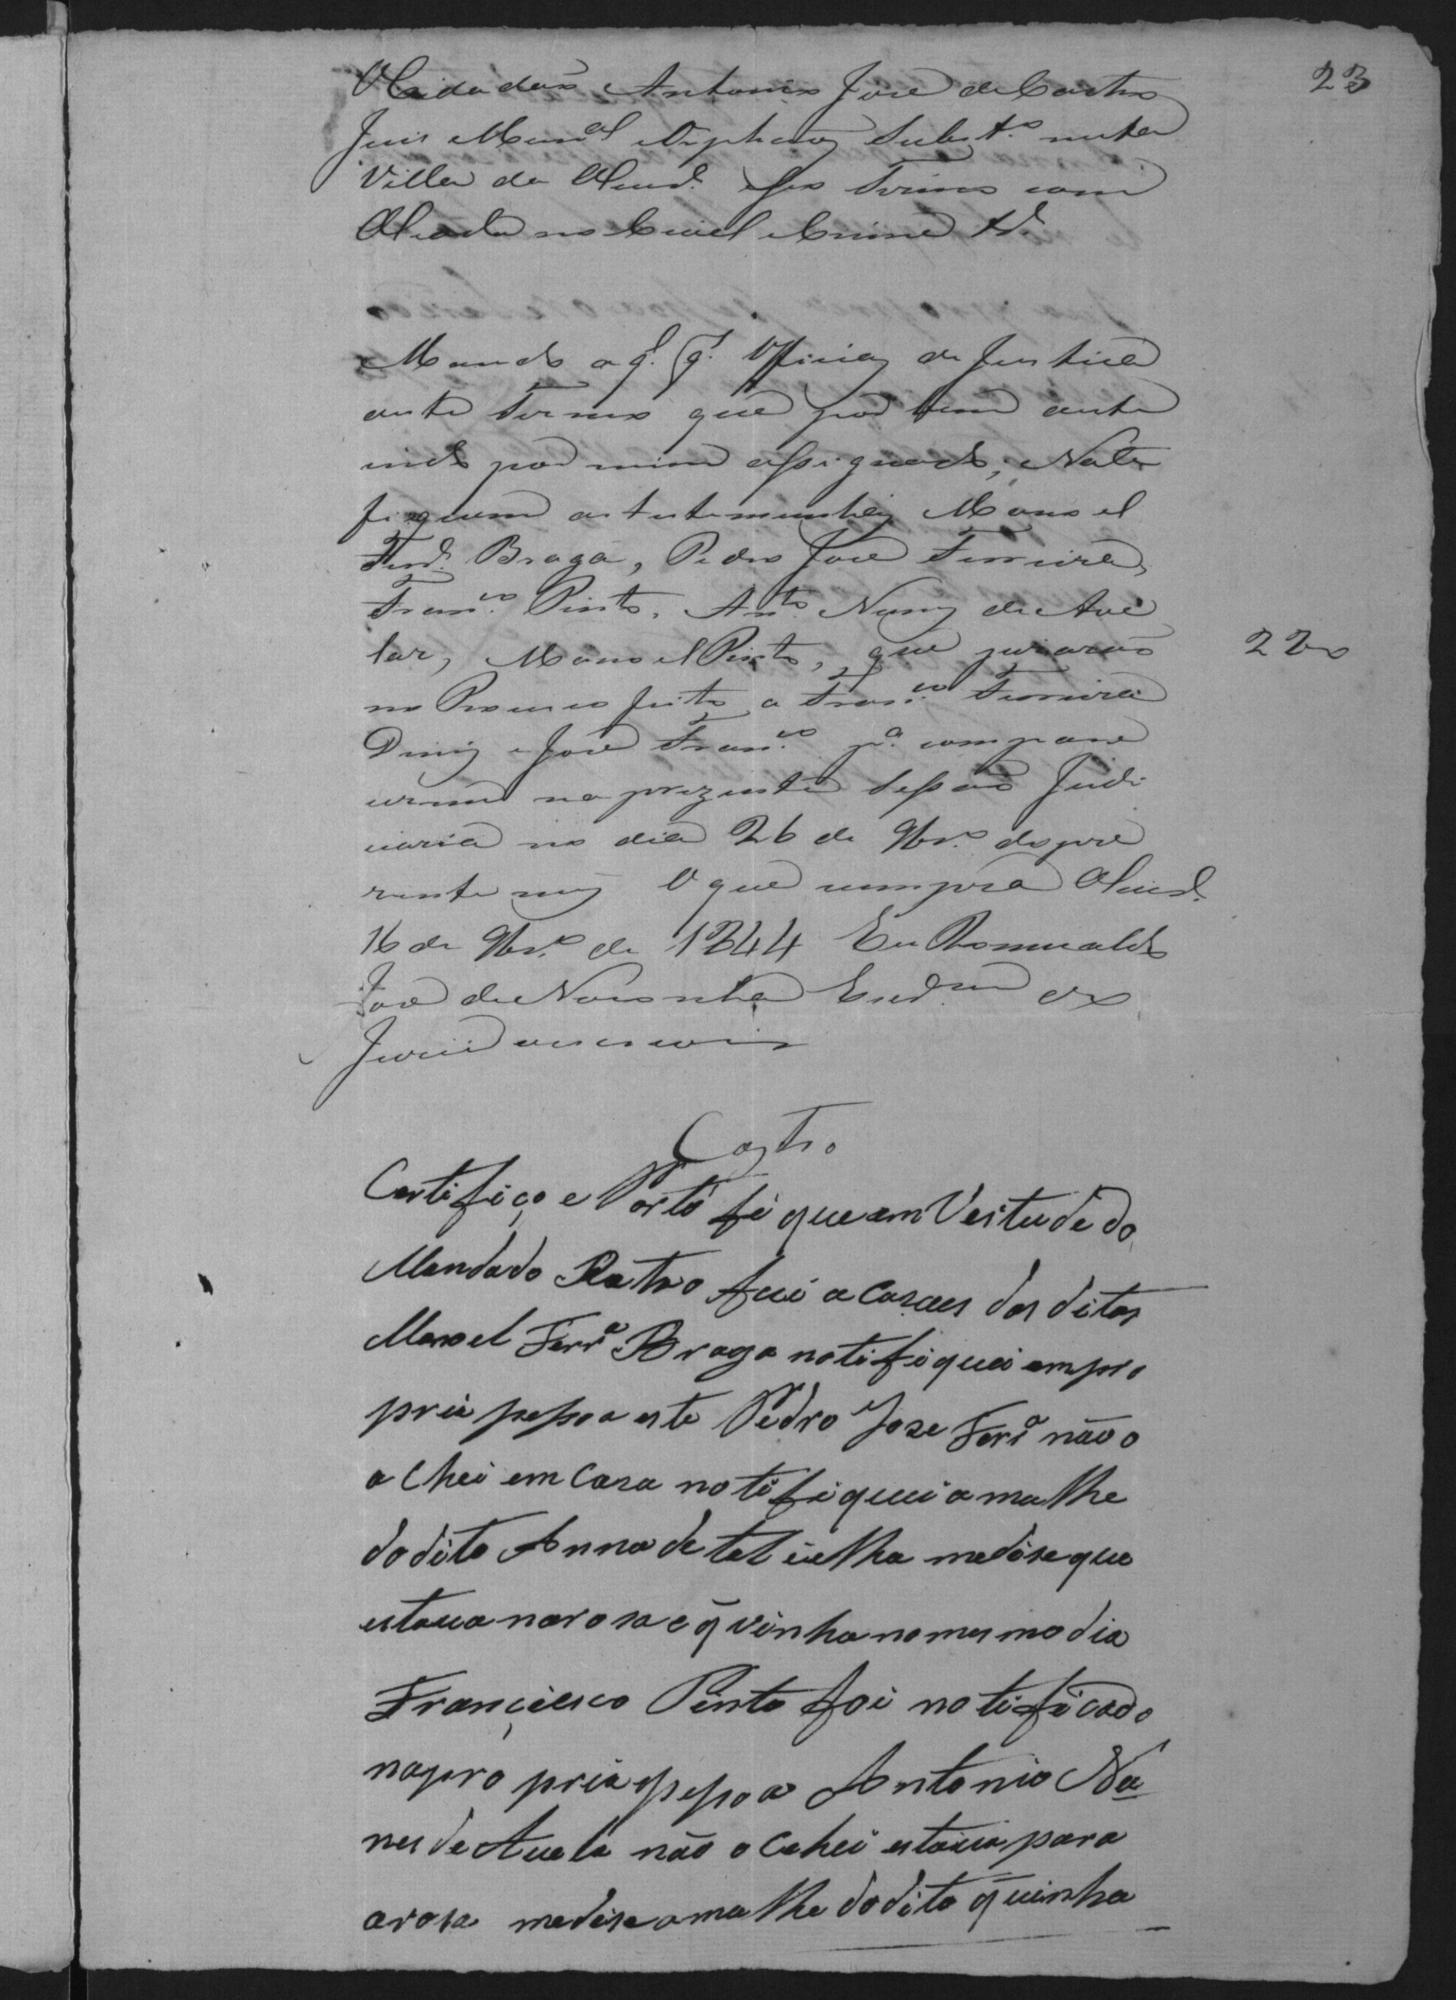 23
O Cidadão Antonio José de Castro
Juis Mun.al e Orphaõs Subst.o nesta
Villa de e seu Termo com
Alçada no Civel e Crime &.
Mando a q.l q.r Officiaes de Justiça
neste Termo que por bem deste
indo por mim assignado, Note
fiquem as testemunhas Manoel
Ferr.a Braga, Pedro José Ferreira,
Fran.co Pinto, Ant.o Nunes de Ave
lar, Manoel Pinto, que juraraõ
no Processo feito a Fran.co Ferreira
Diniz e José Fran.co p.a compare
cerem na prezente Sessaõ Judi
ciaria no dia 26 de 9br.o do pre
zente mes O que cumpra
16 de 9br.o de 1844 Eu Romualdo
José de Noronha Escr.am
Juri o escrevi
220
Castro
Certifico e Porto fé que em Vertude do
Mandado Retro fui a cazaes dos ditos
Manoel Ferr.a Braga notifiquei em pro
pria pessoa este Pedro Joze Fer.a não o
achei em Caza notifiquei a mulhe
do dito Anna de tal i ella me dise que
estava na rosa e q̃ vinha no mesmo dia
Françisco Pinto foi notificado
na pro pria pessoa Antonio Nu
nes de Avela não o achei estava para
a rosa me dise a mulhe do dito q̃ vinha